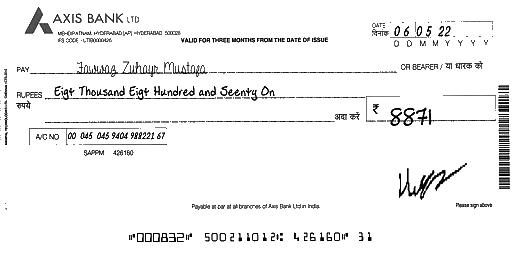 AXIS BANK LTD
MEHDIPATNAM, HYDERABAD (AP) HYDERABAD 500028
IFS CODE : UTIB0000426
VALID FOR THREE MONTHS FROM THE DATE OF ISSUE
DATE
दिनांक
06 05 22
D D M M Y Y Y Y
PAY Fawwaz Zuhayr Mustafa OR BEARER / या धारक को
RUPEES Eigt Thousand Eigt Hundred and Seenty On
रुपये अदा करें ₹ 8871
A/C NO 00 045 045 9404 988221 67
SAPPM 426160
Please sign above
Payable at par at all branches of Axis Bank Ltd in India.
⑈000832⑈ 500211012⑆ 426160⑈ 31